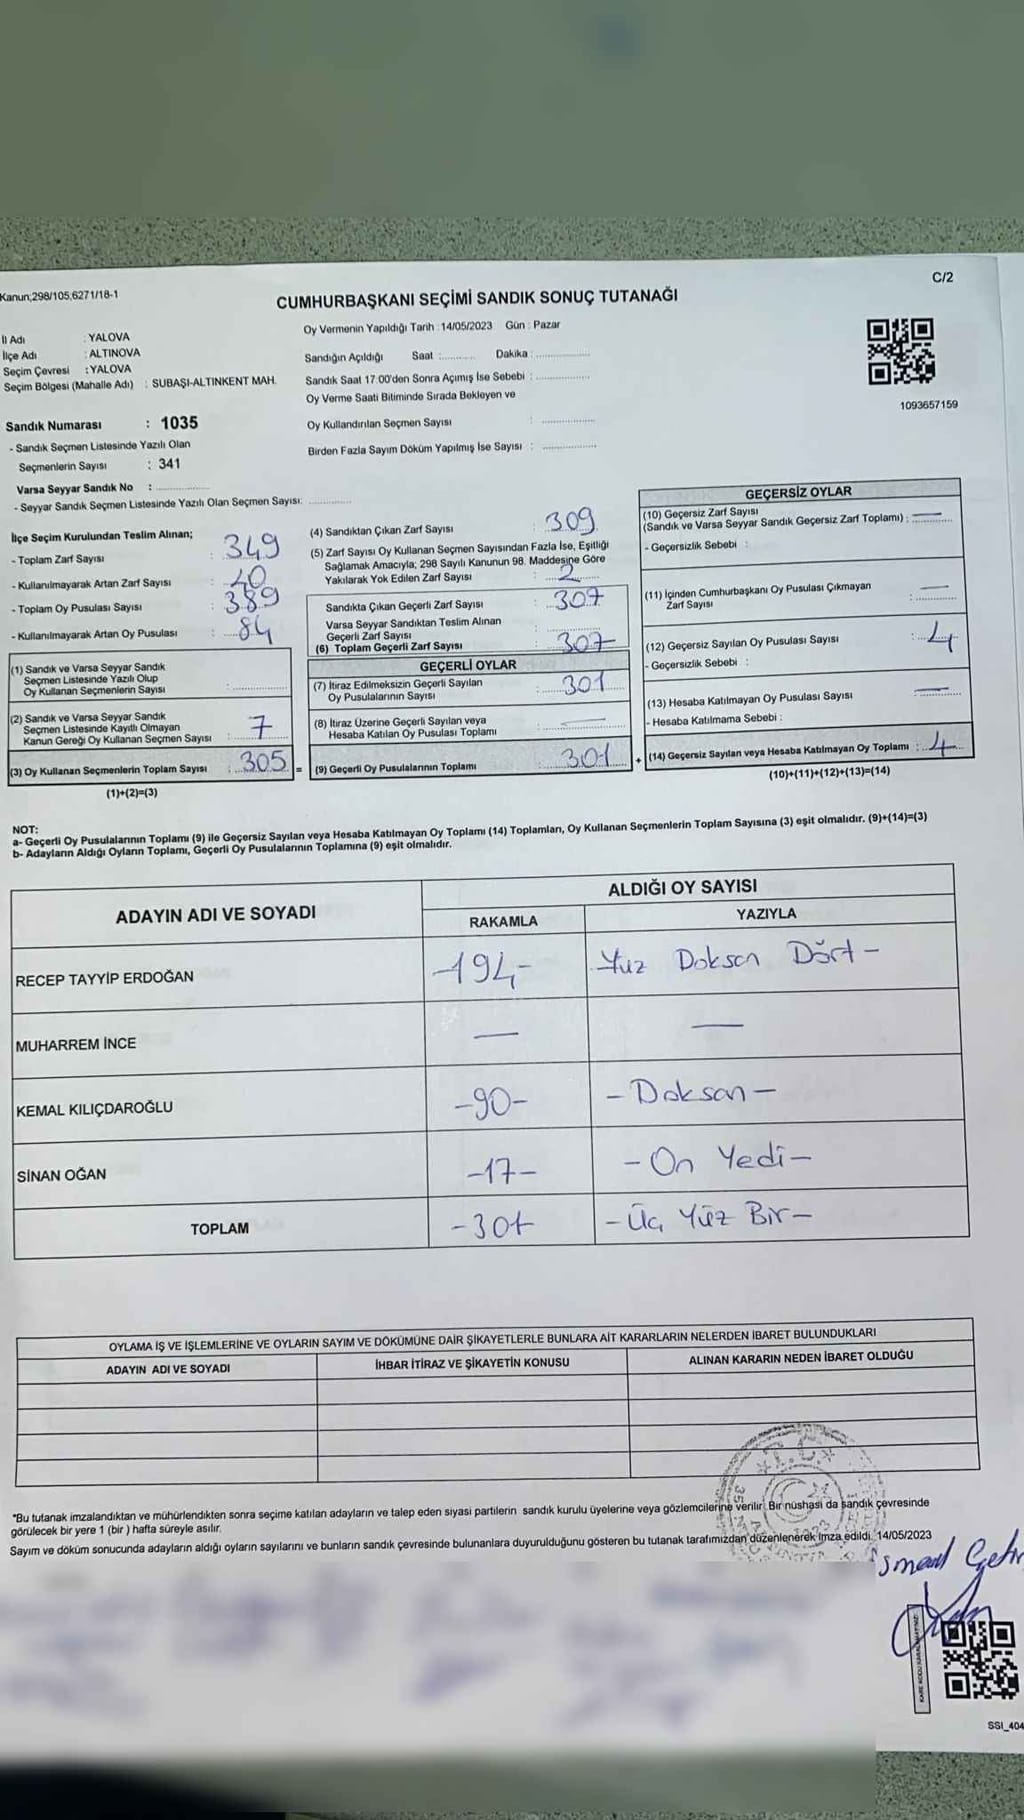 Kanun;298/105,6271/18-1
C/2
CUMHURBAŞKANI SEÇİMİ SANDIK SONUÇ TUTANAĞI
İl Adı : YALOVA
İlçe Adı : ALTINOVA
Seçim Çevresi : YALOVA
Seçim Bölgesi (Mahalle Adı) : SUBAŞI-ALTINKENT MAH.
Oy Vermenin Yapıldığı Tarih : 14/05/2023 Gün : Pazar
Sandığın Açıldığı Saat :.......... Dakika :..............
Sandık Saat 17:00'den Sonra Açımış İse Sebebi :..............
Oy Verme Saati Bitiminde Sırada Bekleyen ve
Oy Kullandırılan Seçmen Sayısı : ..............
Birden Fazla Sayım Döküm Yapılmış İse Sayısı : ..............
1093657159
Sandık Numarası : 1035
- Sandık Seçmen Listesinde Yazılı Olan
Seçmenlerin Sayısı : 341
Varsa Seyyar Sandık No : ..............
- Seyyar Sandık Seçmen Listesinde Yazılı Olan Seçmen Sayısı: ...........
İlçe Seçim Kurulundan Teslim Alınan;
- Toplam Zarf Sayısı : 349
- Kullanılmayarak Artan Zarf Sayısı : 40
- Toplam Oy Pusulası Sayısı : 389
- Kullanılmayarak Artan Oy Pusulası : 84
(1) Sandık ve Varsa Seyyar Sandık
Seçmen Listesinde Yazılı Olup
Oy Kullanan Seçmenlerin Sayısı : ..............
(2) Sandık ve Varsa Seyyar Sandık
Seçmen Listesinde Kayıtlı Olmayan
Kanun Gereği Oy Kullanan Seçmen Sayısı : 7
(3) Oy Kullanan Seçmenlerin Toplam Sayısı : 305 =
(1)+(2)=(3)
(4) Sandıktan Çıkan Zarf Sayısı : 309
(5) Zarf Sayısı Oy Kullanan Seçmen Sayısından Fazla İse, Eşitliği
Sağlamak Amacıyla; 298 Sayılı Kanunun 98. Maddesine Göre
Yakılarak Yok Edilen Zarf Sayısı : 2
Sandıkta Çıkan Geçerli Zarf Sayısı : 307
Varsa Seyyar Sandıktan Teslim Alınan
Geçerli Zarf Sayısı : ..............
(6) Toplam Geçerli Zarf Sayısı : 307
GEÇERLİ OYLAR
(7) İtiraz Edilmeksizin Geçerli Sayılan
Oy Pusulalarının Sayısı : 301
(8) İtiraz Üzerine Geçerli Sayılan veya
Hesaba Katılan Oy Pusulası Toplamı : —
(9) Geçerli Oy Pusulalarının Toplamı : 301 +
GEÇERSİZ OYLAR
(10) Geçersiz Zarf Sayısı
(Sandık ve Varsa Seyyar Sandık Geçersiz Zarf Toplamı) : —
- Geçersizlik Sebebi :
(11) İçinden Cumhurbaşkanı Oy Pusulası Çıkmayan
Zarf Sayısı : —
(12) Geçersiz Sayılan Oy Pusulası Sayısı : 4
- Geçersizlik Sebebi :
(13) Hesaba Katılmayan Oy Pusulası Sayısı : —
- Hesaba Katılmama Sebebi :
(14) Geçersiz Sayılan veya Hesaba Katılmayan Oy Toplamı : 4
(10)+(11)+(12)+(13)=(14)
NOT:
a- Geçerli Oy Pusulalarının Toplamı (9) ile Geçersiz Sayılan veya Hesaba Katılmayan Oy Toplamı (14) Toplamları, Oy Kullanan Seçmenlerin Toplam Sayısına (3) eşit olmalıdır. (9)+(14)=(3)
b- Adayların Aldığı Oyların Toplamı, Geçerli Oy Pusulalarının Toplamına (9) eşit olmalıdır.
ADAYIN ADI VE SOYADI
ALDIĞI OY SAYISI
RAKAMLA YAZIYLA
RECEP TAYYİP ERDOĞAN -194- Yüz Doksan Dört -
MUHARREM İNCE — —
KEMAL KILIÇDAROĞLU -90- - Doksan -
SİNAN OĞAN -17- - On Yedi -
TOPLAM -301 - Üç Yüz Bir -
OYLAMA İŞ VE İŞLEMLERİNE VE OYLARIN SAYIM VE DÖKÜMÜNE DAİR ŞİKAYETLERLE BUNLARA AİT KARARLARIN NELERDEN İBARET BULUNDUKLARI
ADAYIN ADI VE SOYADI İHBAR İTİRAZ VE ŞİKAYETİN KONUSU ALINAN KARARIN NEDEN İBARET OLDUĞU
T.C.
"Bu tutanak imzalandıktan ve mühürlendikten sonra seçime katılan adayların ve talep eden siyasi partilerin sandık kurulu üyelerine veya gözlemcilerine verilir. Bir nüshası da sandık çevresinde
görülecek bir yere 1 (bir ) hafta süreyle asılır.
Sayım ve döküm sonucunda adayların aldığı oyların sayılarını ve bunların sandık çevresinde bulunanlara duyurulduğunu gösteren bu tutanak tarafımızdan düzenlenerek imza edildi. 14/05/2023
SSI_404